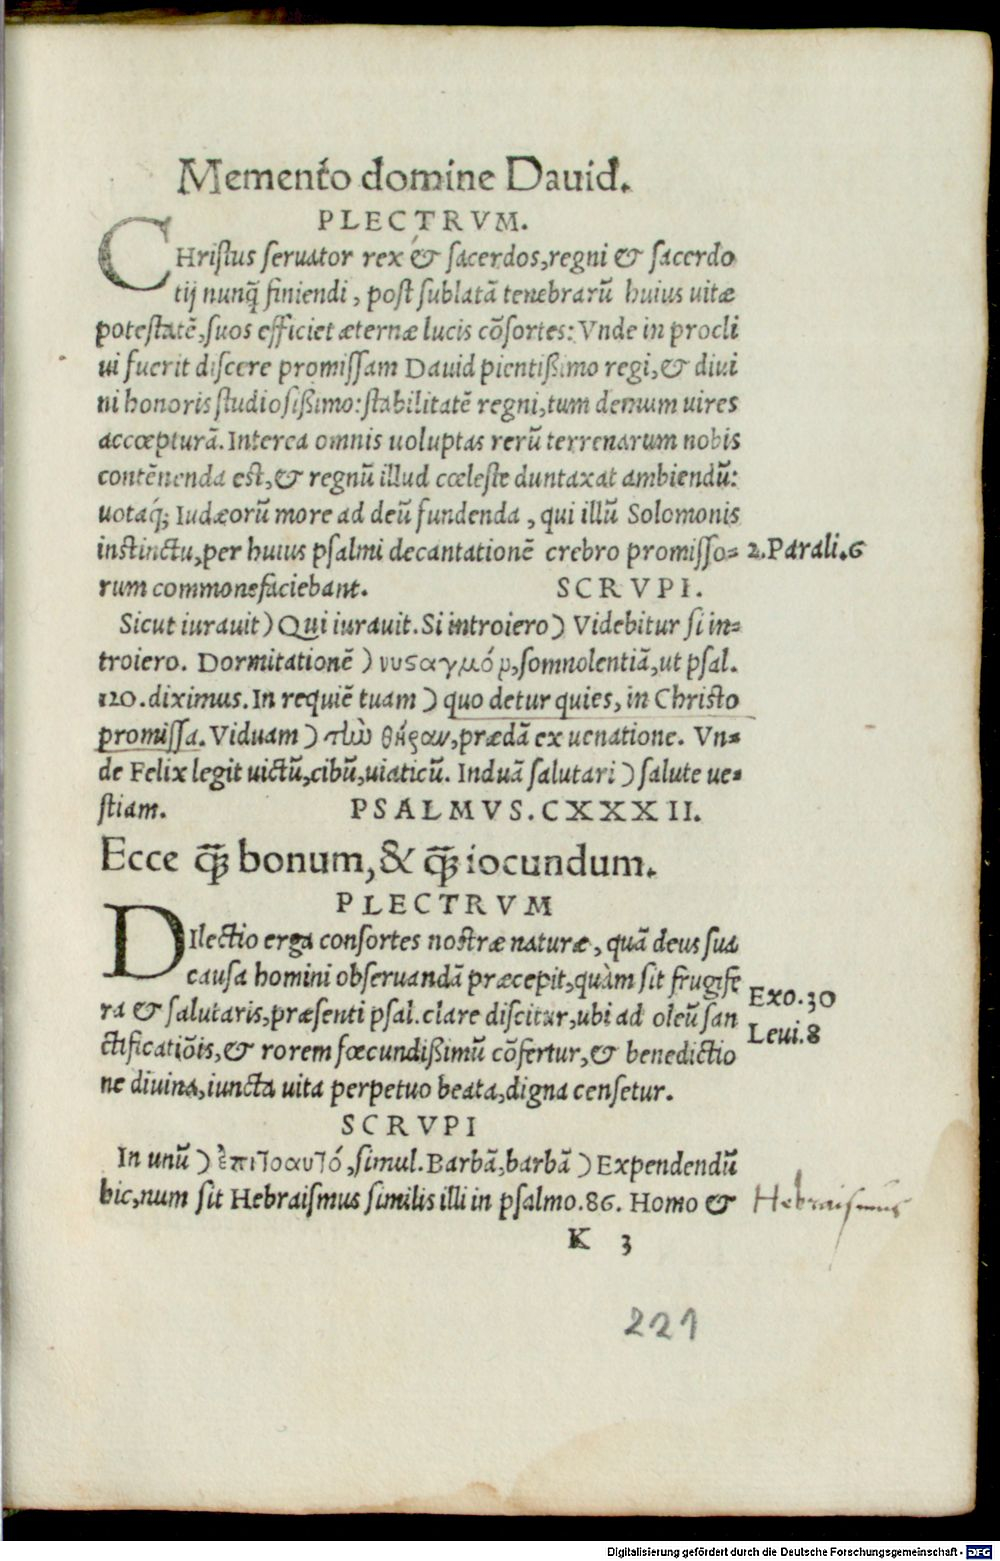 Memento domine Dauid.
PLECTRVM.
CHristus seruator rex & sacerdos, regni & sacerdo
tij nunq̃ finiendi, post sublatã tenebrarũ huius uitæ
potestatẽ, suos efficiet æternæ lucis cõsortes: Vnde in procli
ui fuerit discere promissam Dauid pientißimo regi, & diui
ni honoris studiosißimo: stabilitatẽ regni, tum demum uires
accœpturã. Interea omnis uoluptas rerũ terrenarum nobis
contẽnenda est, & regnũ illud cœleste duntaxat ambiendũ:
uotaq́; Iudæorũ more ad deũ fundenda, qui illũ Solomonis
instinctu, per huius psalmi decantationẽ crebro promisso= 2.Parali.6
rum commonefaciebant. SCRVPI.
Sicut iurauit) Qui iurauit. Si introiero) Videbitur si in=
troiero. Dormitationẽ) νυσαγμόρ, somnolentiã, ut psal.
120. diximus. In requiẽ tuam) quo detur quies, in Christo
promissa. Viduam) τὼ θήραν, prædã ex uenatione. Vn=
de Felix legit uictũ, cibũ, uiaticũ. Induã salutari) salute ue=
stiam. PSALMVS. CXXXII.
Ecce q̃ȝ bonum, & q̃ȝ iocundum.
PLECTRVM
DIlectio erga consortes nostræ naturæ, quã deus sua
causa homini obseruandã præcepit, quàm sit frugife
ra & salutaris, præsenti psal. clare discitur, ubi ad oleũ san Exo.30
ctificatiõis, & rorem fœcundißimũ cõfertur, & benedictio Leui.8
ne diuina, iuncta uita perpetuo beata, digna censetur.
SCRVPI
In unũ) ἐπιτοαυτό, simul. Barbã, barbã) Expendendũ
hic, num sit Hebraismus similis illi in psalmo. 86. Homo & Hebraismus
K 3
221
Digitalisierung gefördert durch die Deutsche Forschungsgemeinschaft - DFG